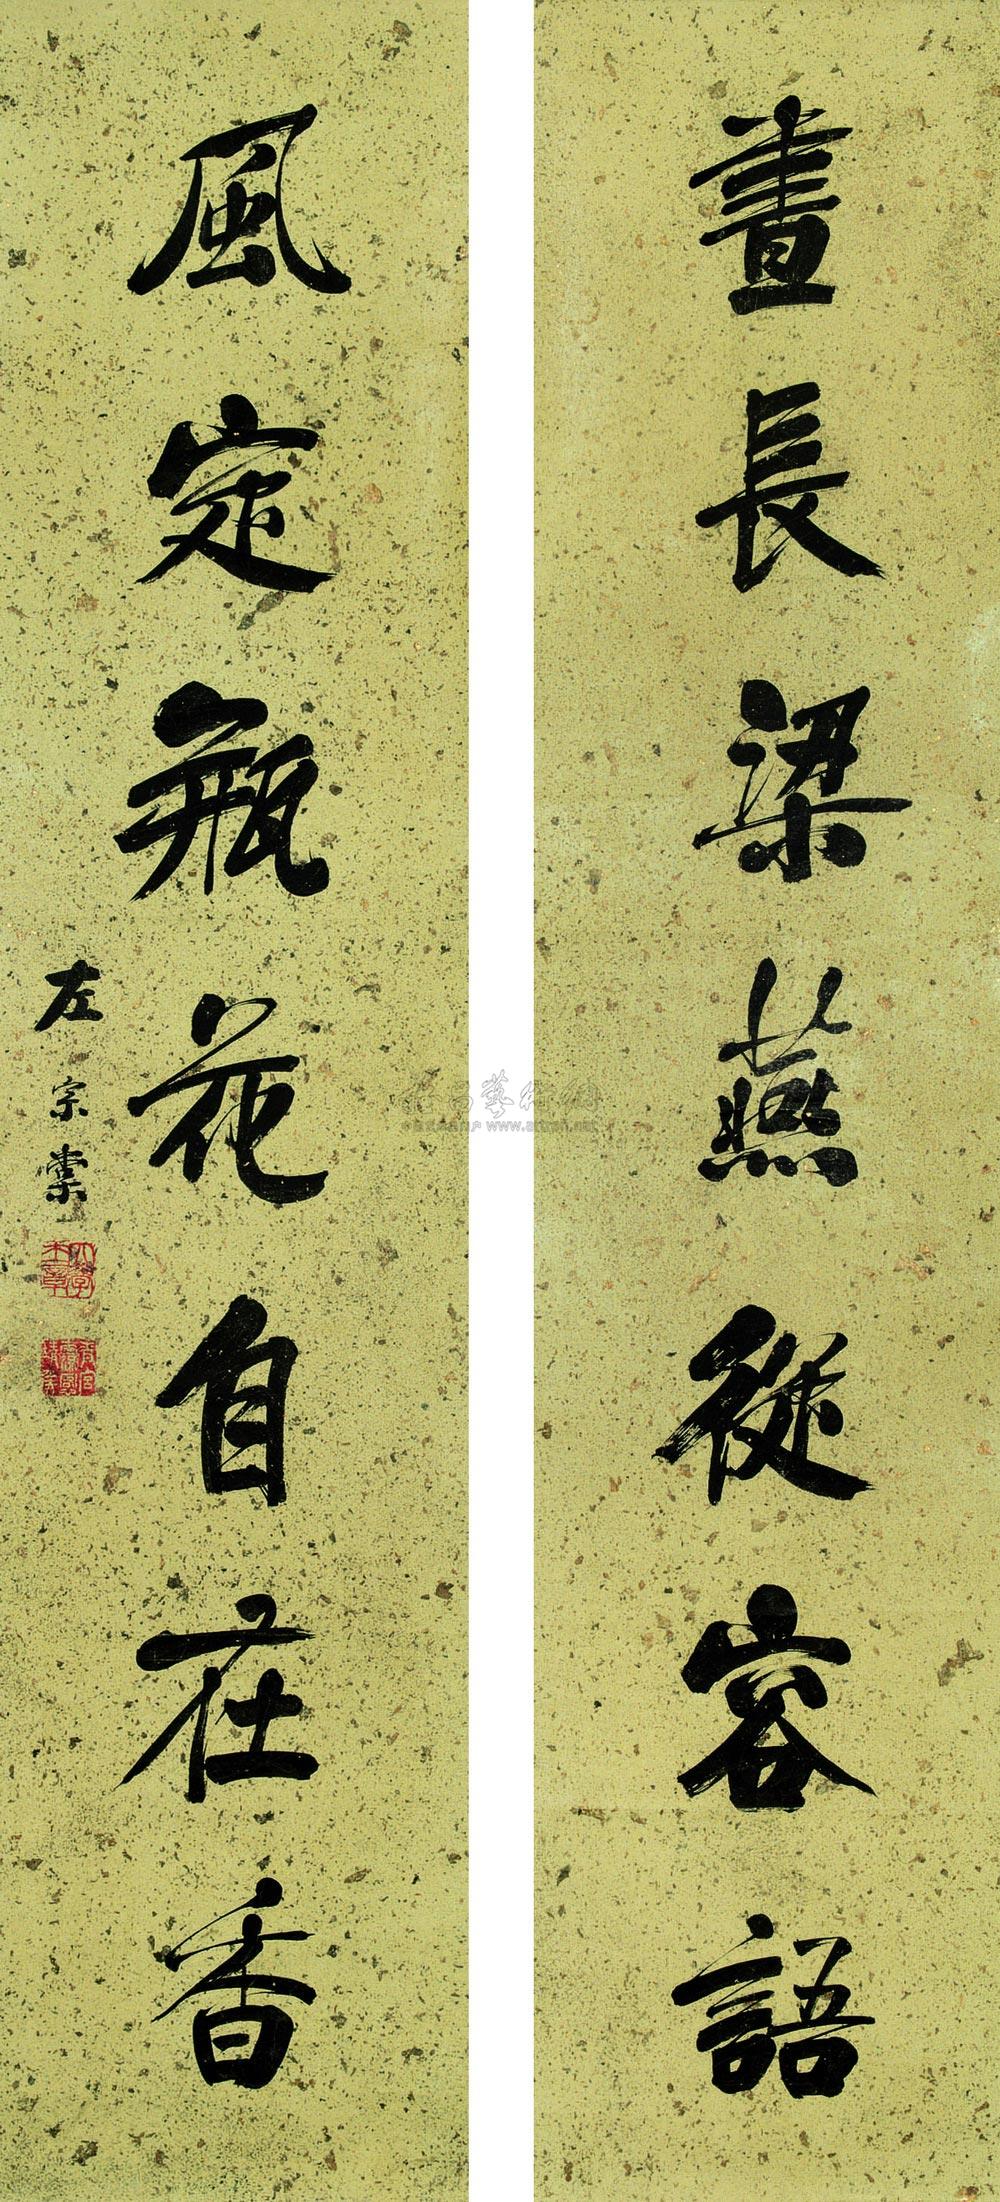 晝長梁燕從容語
風定瓶花自在香
左宗棠
大學士章
www.artron.net